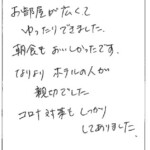 お部屋が広くて
ゆったりできました.
朝食もおいしかったです.
なにより ホテルの人が
親切でした
コロナ対策もしっかり
してありました.